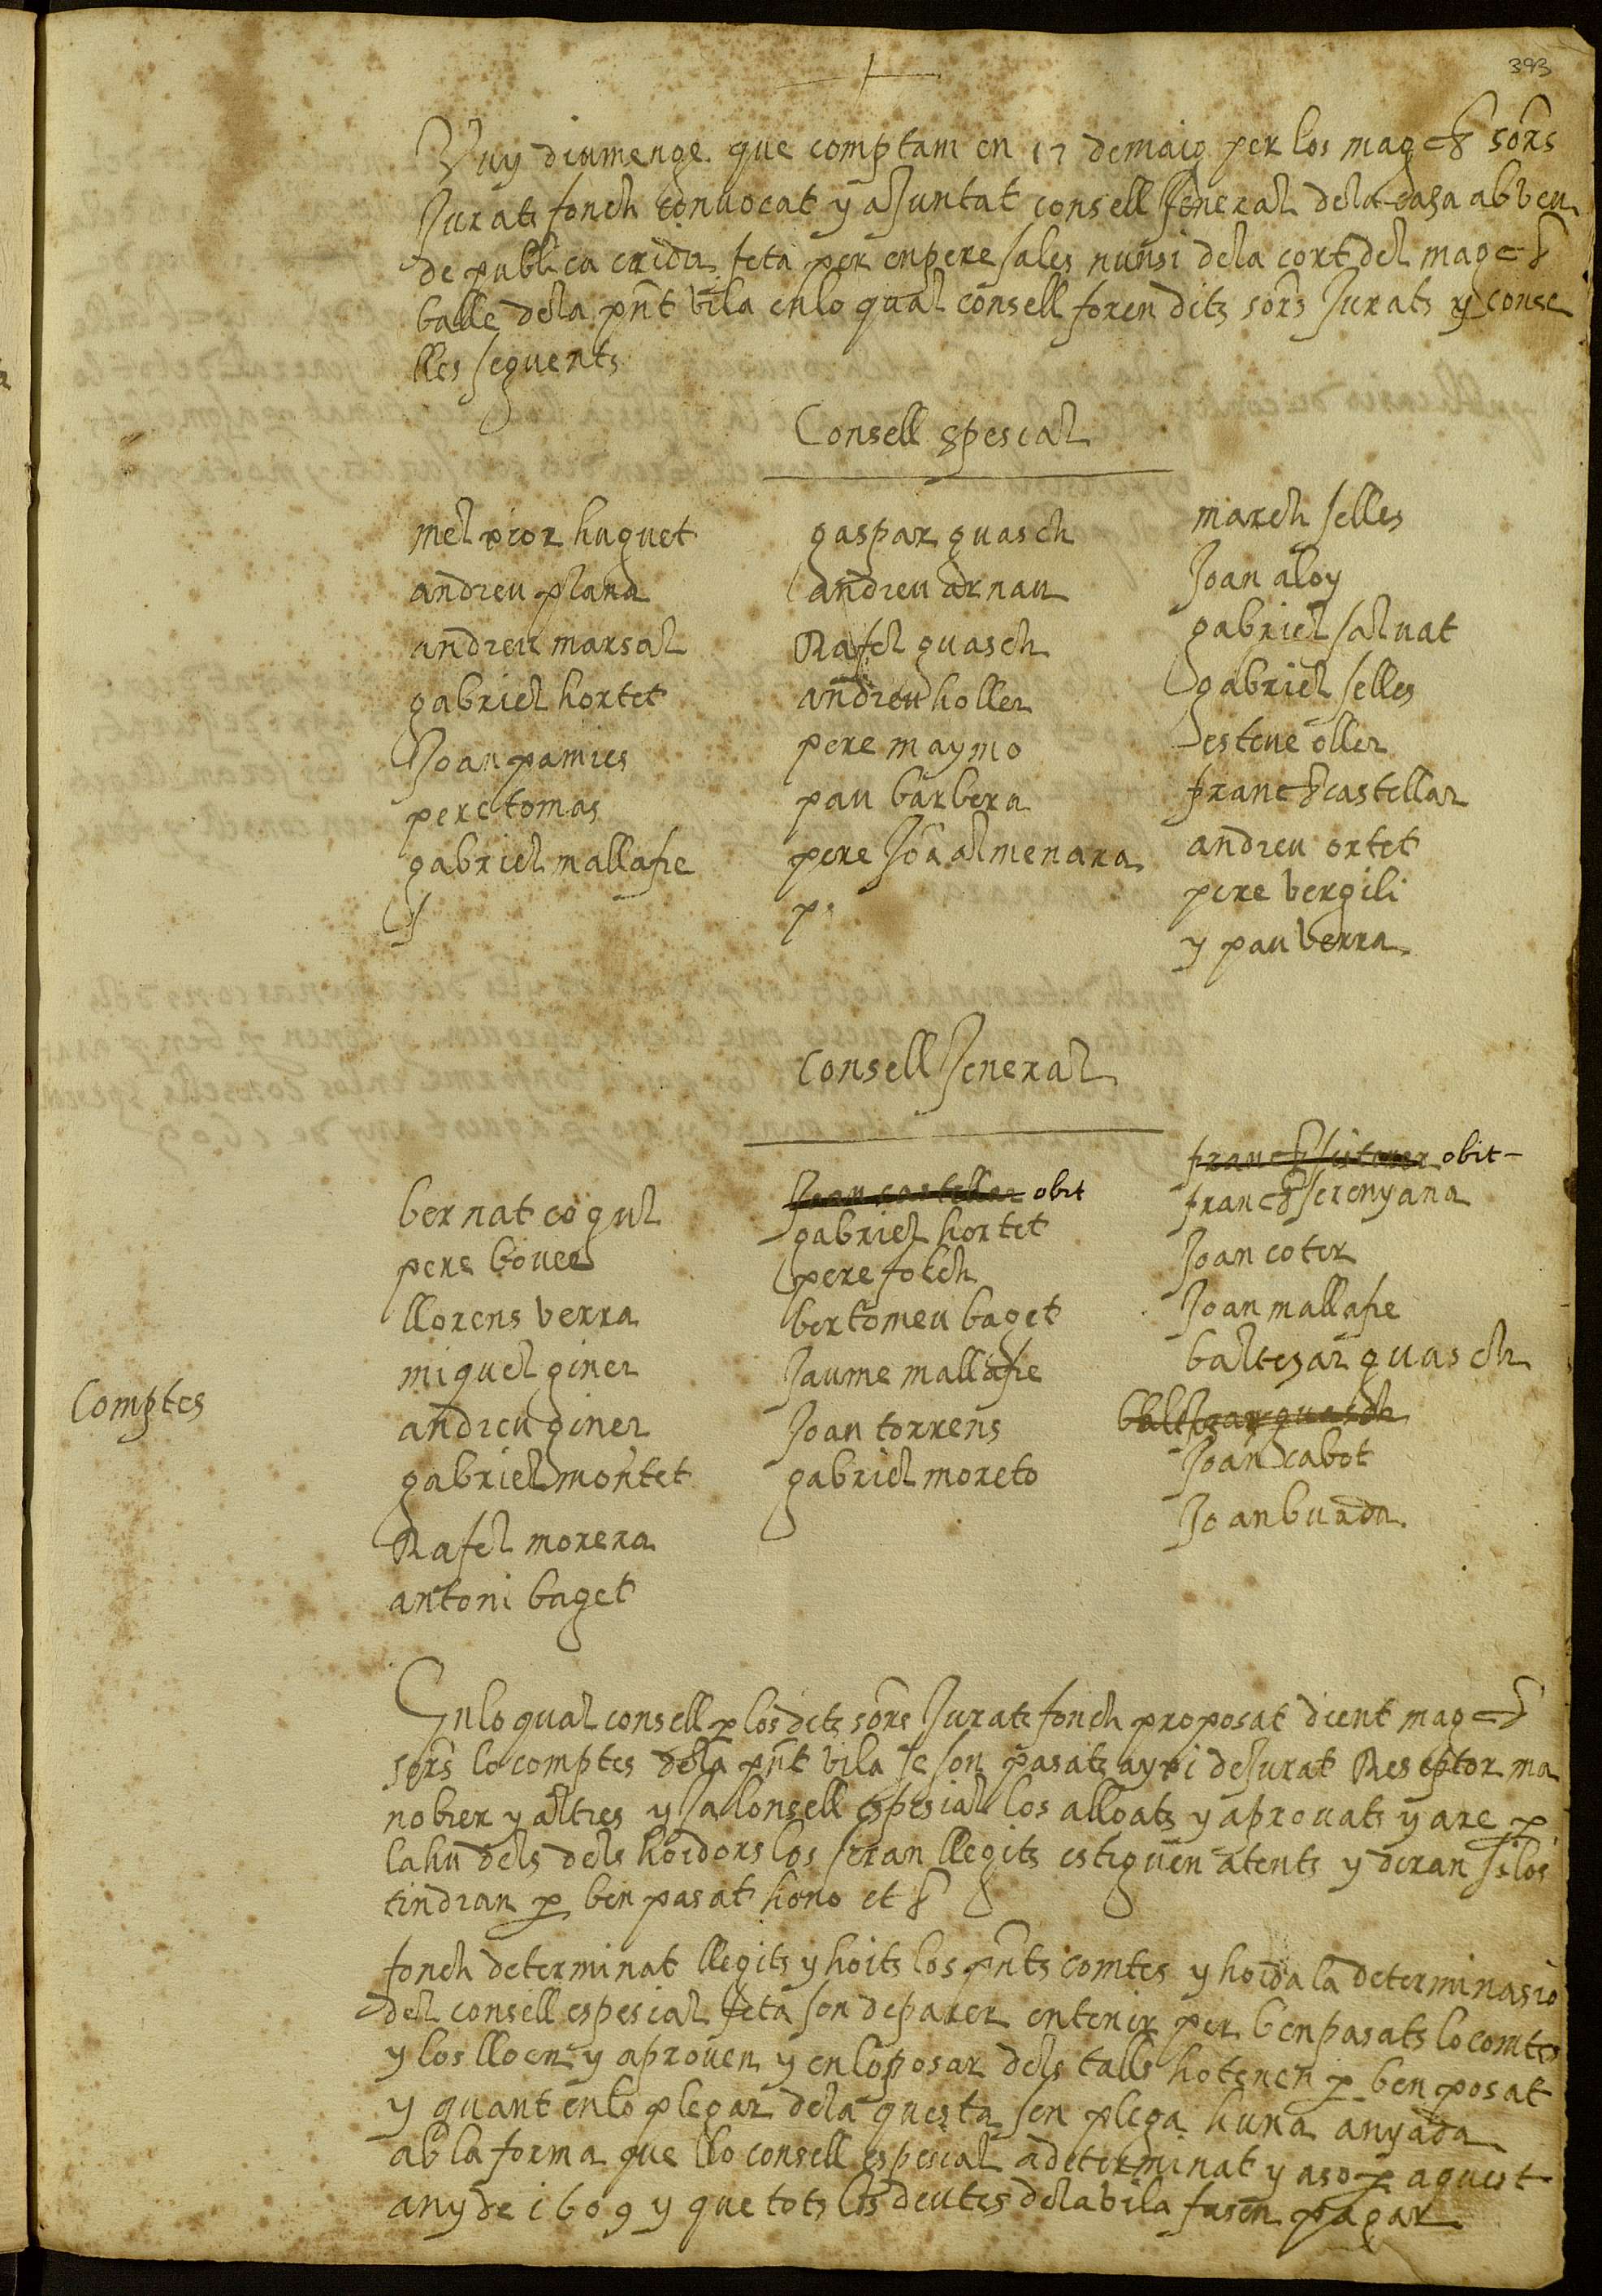 393
Vuy diumenge que comptam en 17 de maig per los magcs sors
Jurats fonch convocat y ajuntat consell Jeneral dela casa ab veu
de publica crida feta per en pere sales nunsi dela cort del magch
balle dela pnt vila en lo qual consell foren dits sors Jurats y conse
lles seguents
Consell spesial
mel pior huguet
andreu plana
andreu marsal
gabriel hortet
Joan pamies
pere tomas
gabriel mallafre
gaspar guasch
andreu arnau
Rafel guasch
andreu holler
pere maymo
pau barbera
pere Joa almenara
march selles
Joan aloy
gabriel salvat
gabriel selles
esteve oller
franch castellar
andreu ortet
pere vergili
y pau verra
Consell Jeneral
bernat cogul
pere bover
llorens verra
miquel giner
andreu giner
gabriel montet
Rafel morera
antoni baget
Joan castellar obit
gabriel hortet
pere folch
bertomeu baget
Jaume mallafre
Joan torrens
gabriel moreto
franch obit
franch serenyana
Joan coter
Joan mallafre
baltesar guasch
baltesar guasch
Joan cabot
Joan buada
Comptes
En lo qual consell p los dits sors Jurats fonch proposat dient magchs
sors lo comptes dela pnt vila se son pasats ayxi de Jurat Reseptor ma
nobrer y altres y ja lonsell espesial los alloats y aprovats y are p
la hu dels dels hoidors los seran llegits estiguen atents y diran si los
tindran p ben pasat ho no etc
fonch determinat llegits y hoits los pnts comtes y hoida la determinasio
del consell espesial feta son de parer en tenir per ben pasats lo comtes
y los lloen y aproven y en lo posar dels talls ho tenen p ben posat
y quant en lo plegar dela questa sen plega huna anyada
ab la forma que llo consell espesial a determinat y aso p aquest
any de 1609 y que tots los deutes dela vila fasen pagar